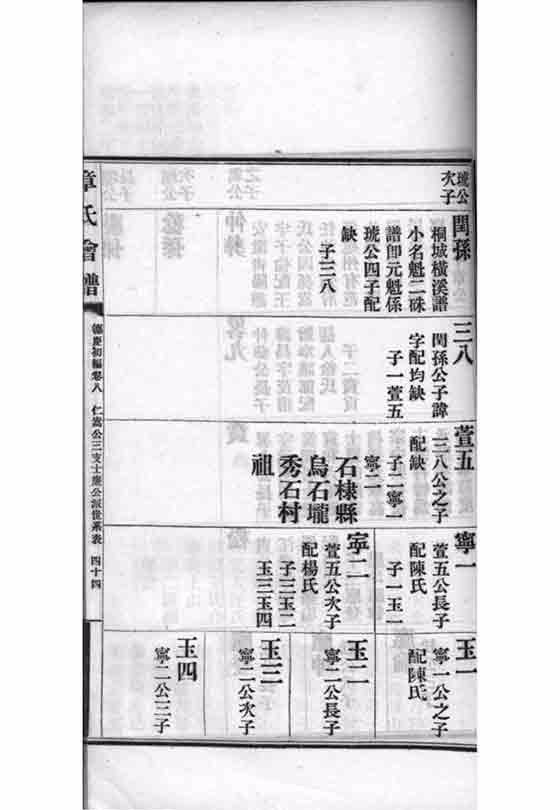 琥公
次子
閏孫
桐城橫溪譜
小名魁二硃
譜卽元魁係
琥公四子配
缺
子三八
三八
閏孫公子諱
字配均缺
子一萱五
萱五
三八公之子
配缺
子二寧一
寧二
石棣縣
烏石壠
秀石村
祖
寧一
萱五公長子
配陳氏
子一玉一
寧二
萱五公次子
配楊氏
子三玉二
玉三玉四
玉一
寧一公之子
配陳氏
玉二
寧二公長子
玉三
寧二公次子
玉四
寧二公三子
章氏會譜
德慶初編卷八
仁嵩公三支士應公派世系表
四十四